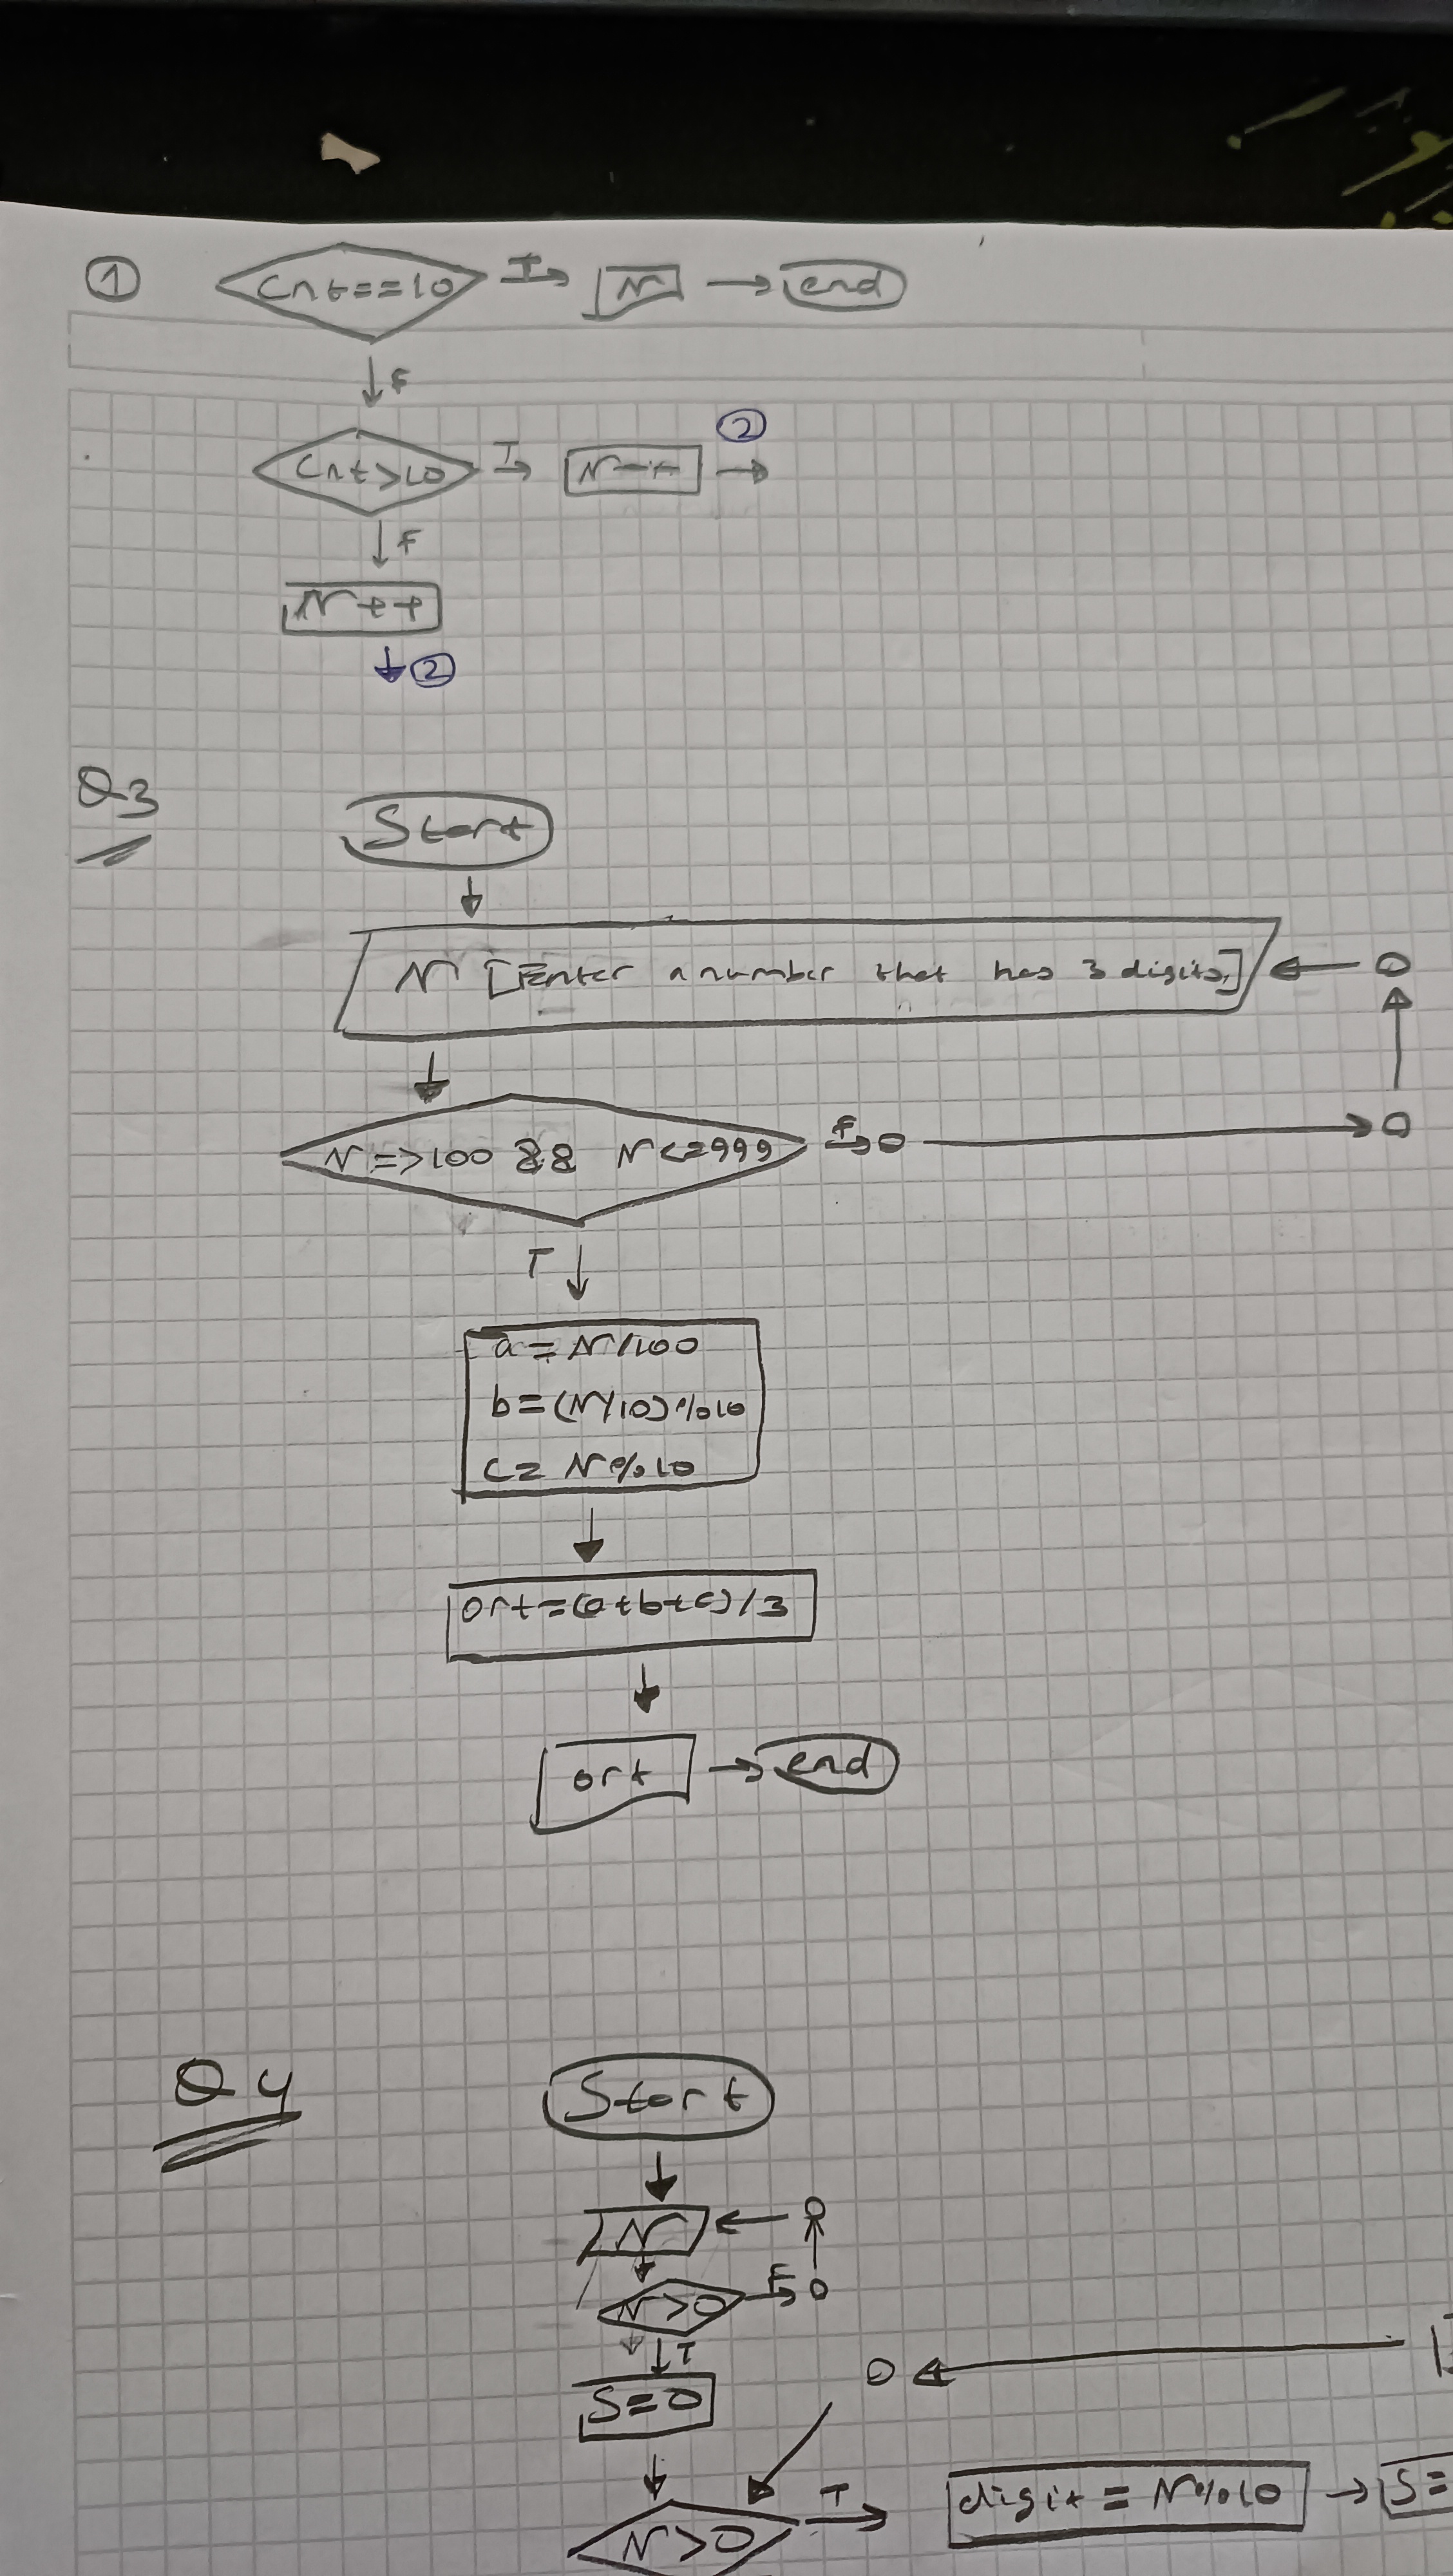 ① Cnt==10 T N end
F
②
Cnt>10 T N--
F
N++
②
Q3
Start
N [Enter a number that has 3 digits]
N=>100 && N<=999 F
T
a=N/100
b=(N/10)%10
c=N%10
ort=(a+b+c)/3
ort end
Q4
Start
N
N>0 F
T
S=0
T
digit=N%10 S=
N>0